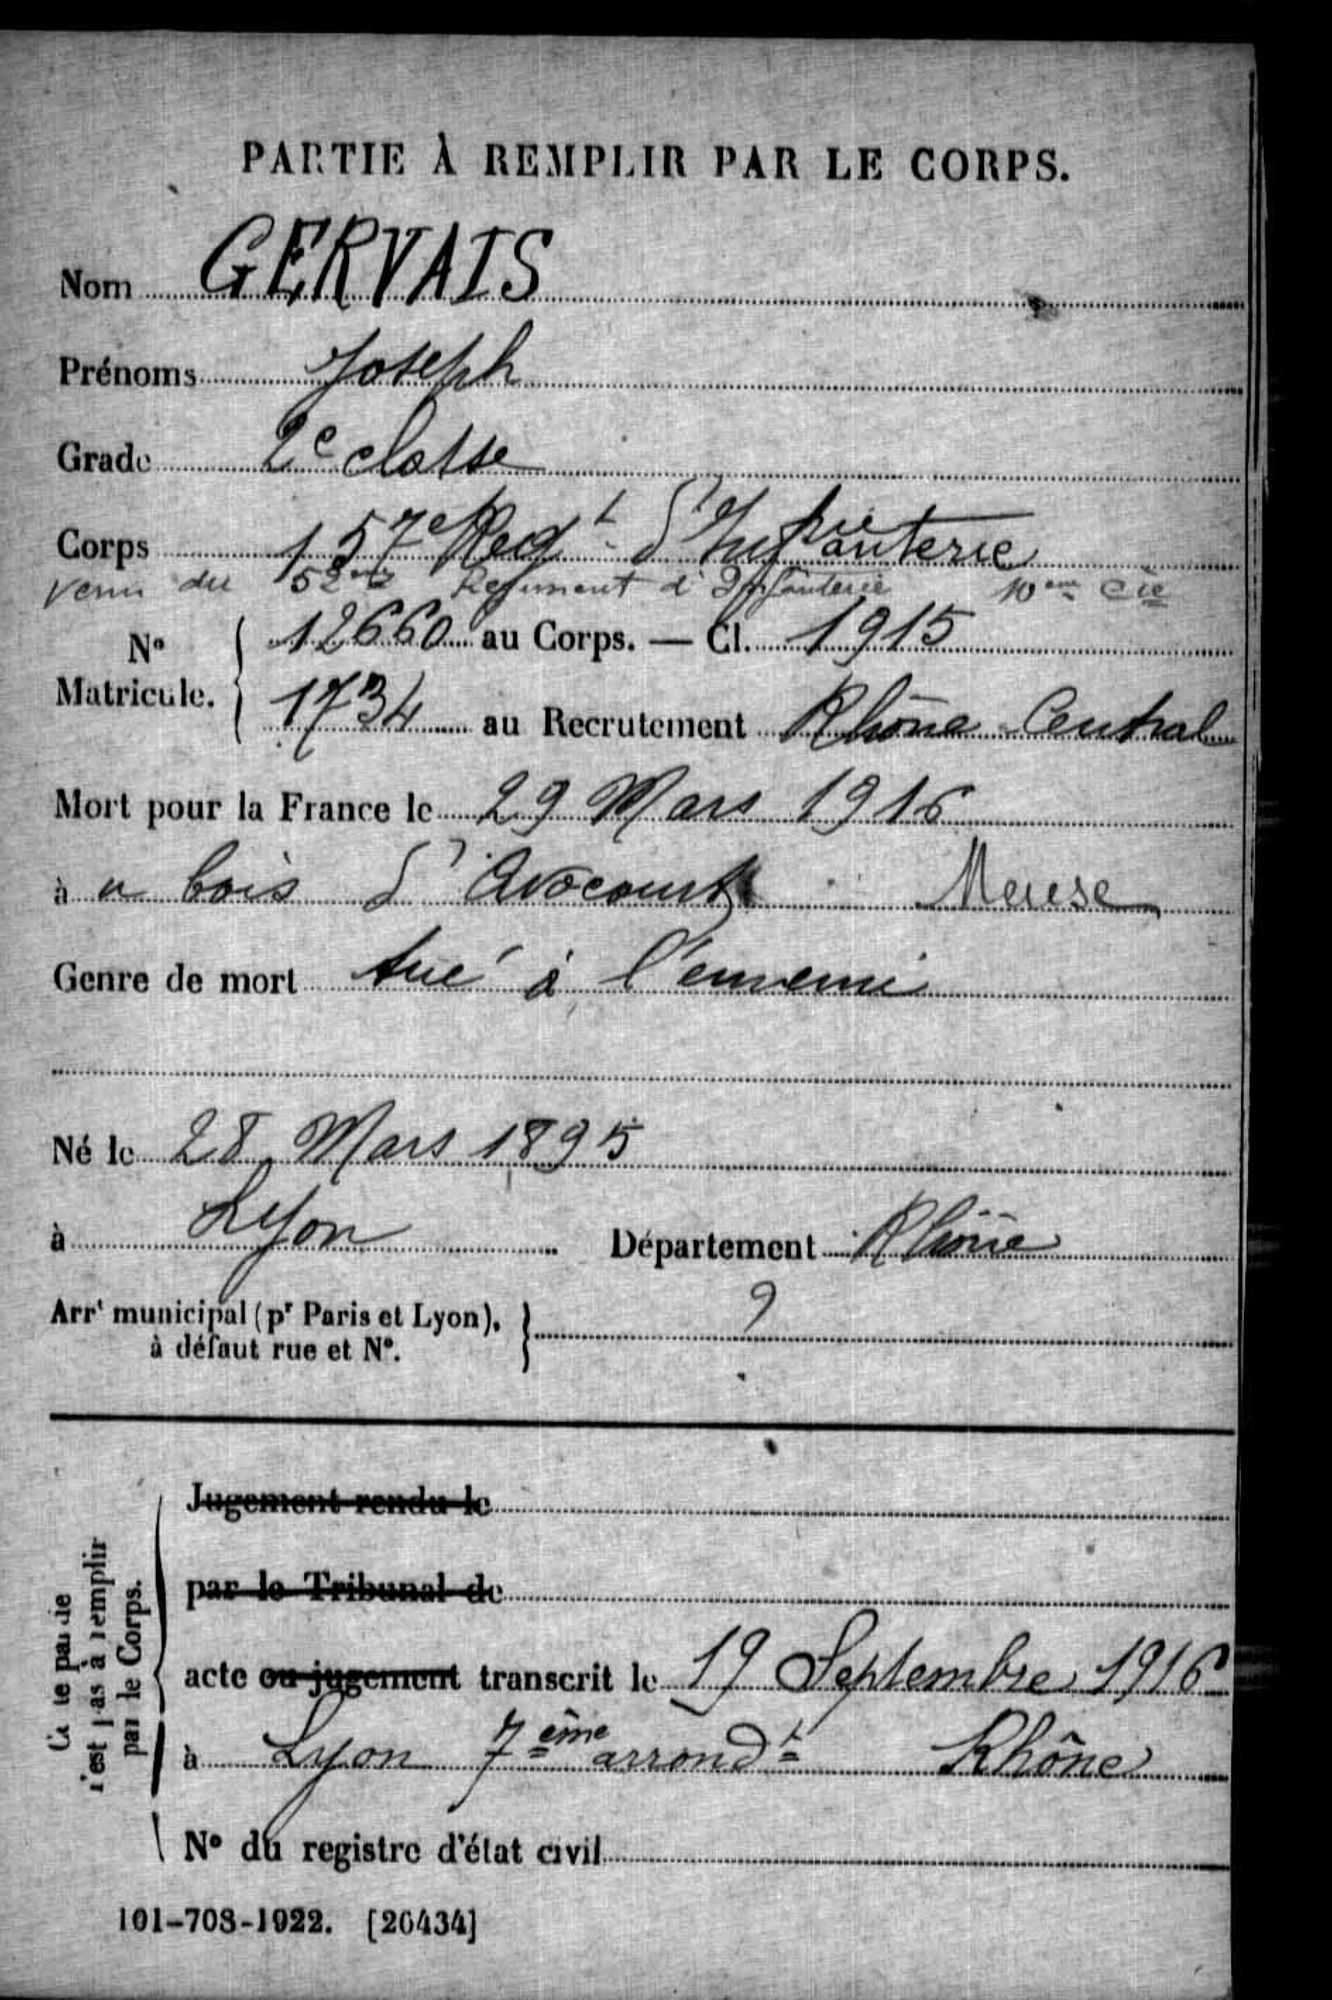 PARTIE À REMPLIR PAR LE CORPS.
Nom GERVAIS
Prénoms Joseph
Grade 2e classe
Corps 157e Regt d'Infanterie
Venu du 52eme Regiment d'Infanterie 10eme Cie
No Matricule. 12660 au Corps. — Cl. 1915
1734 au Recrutement Rhône Central
Mort pour la France le 29 Mars 1916
à u bois d'Avocourt Meuse
Genre de mort tué à l'ennemi
Né le 28 Mars 1895
à Lyon Département Rhône
Arrt municipal (pr Paris et Lyon), à défaut rue et No.
Jugement rendu le
par le Tribunal de
acte ou jugement transcrit le 19 Septembre 1916
à Lyon 7ème arrondt Rhône
No du registre d'état civil
Cette partie
n'est pas à remplir
par le Corps.
101-708-1922. [26434]